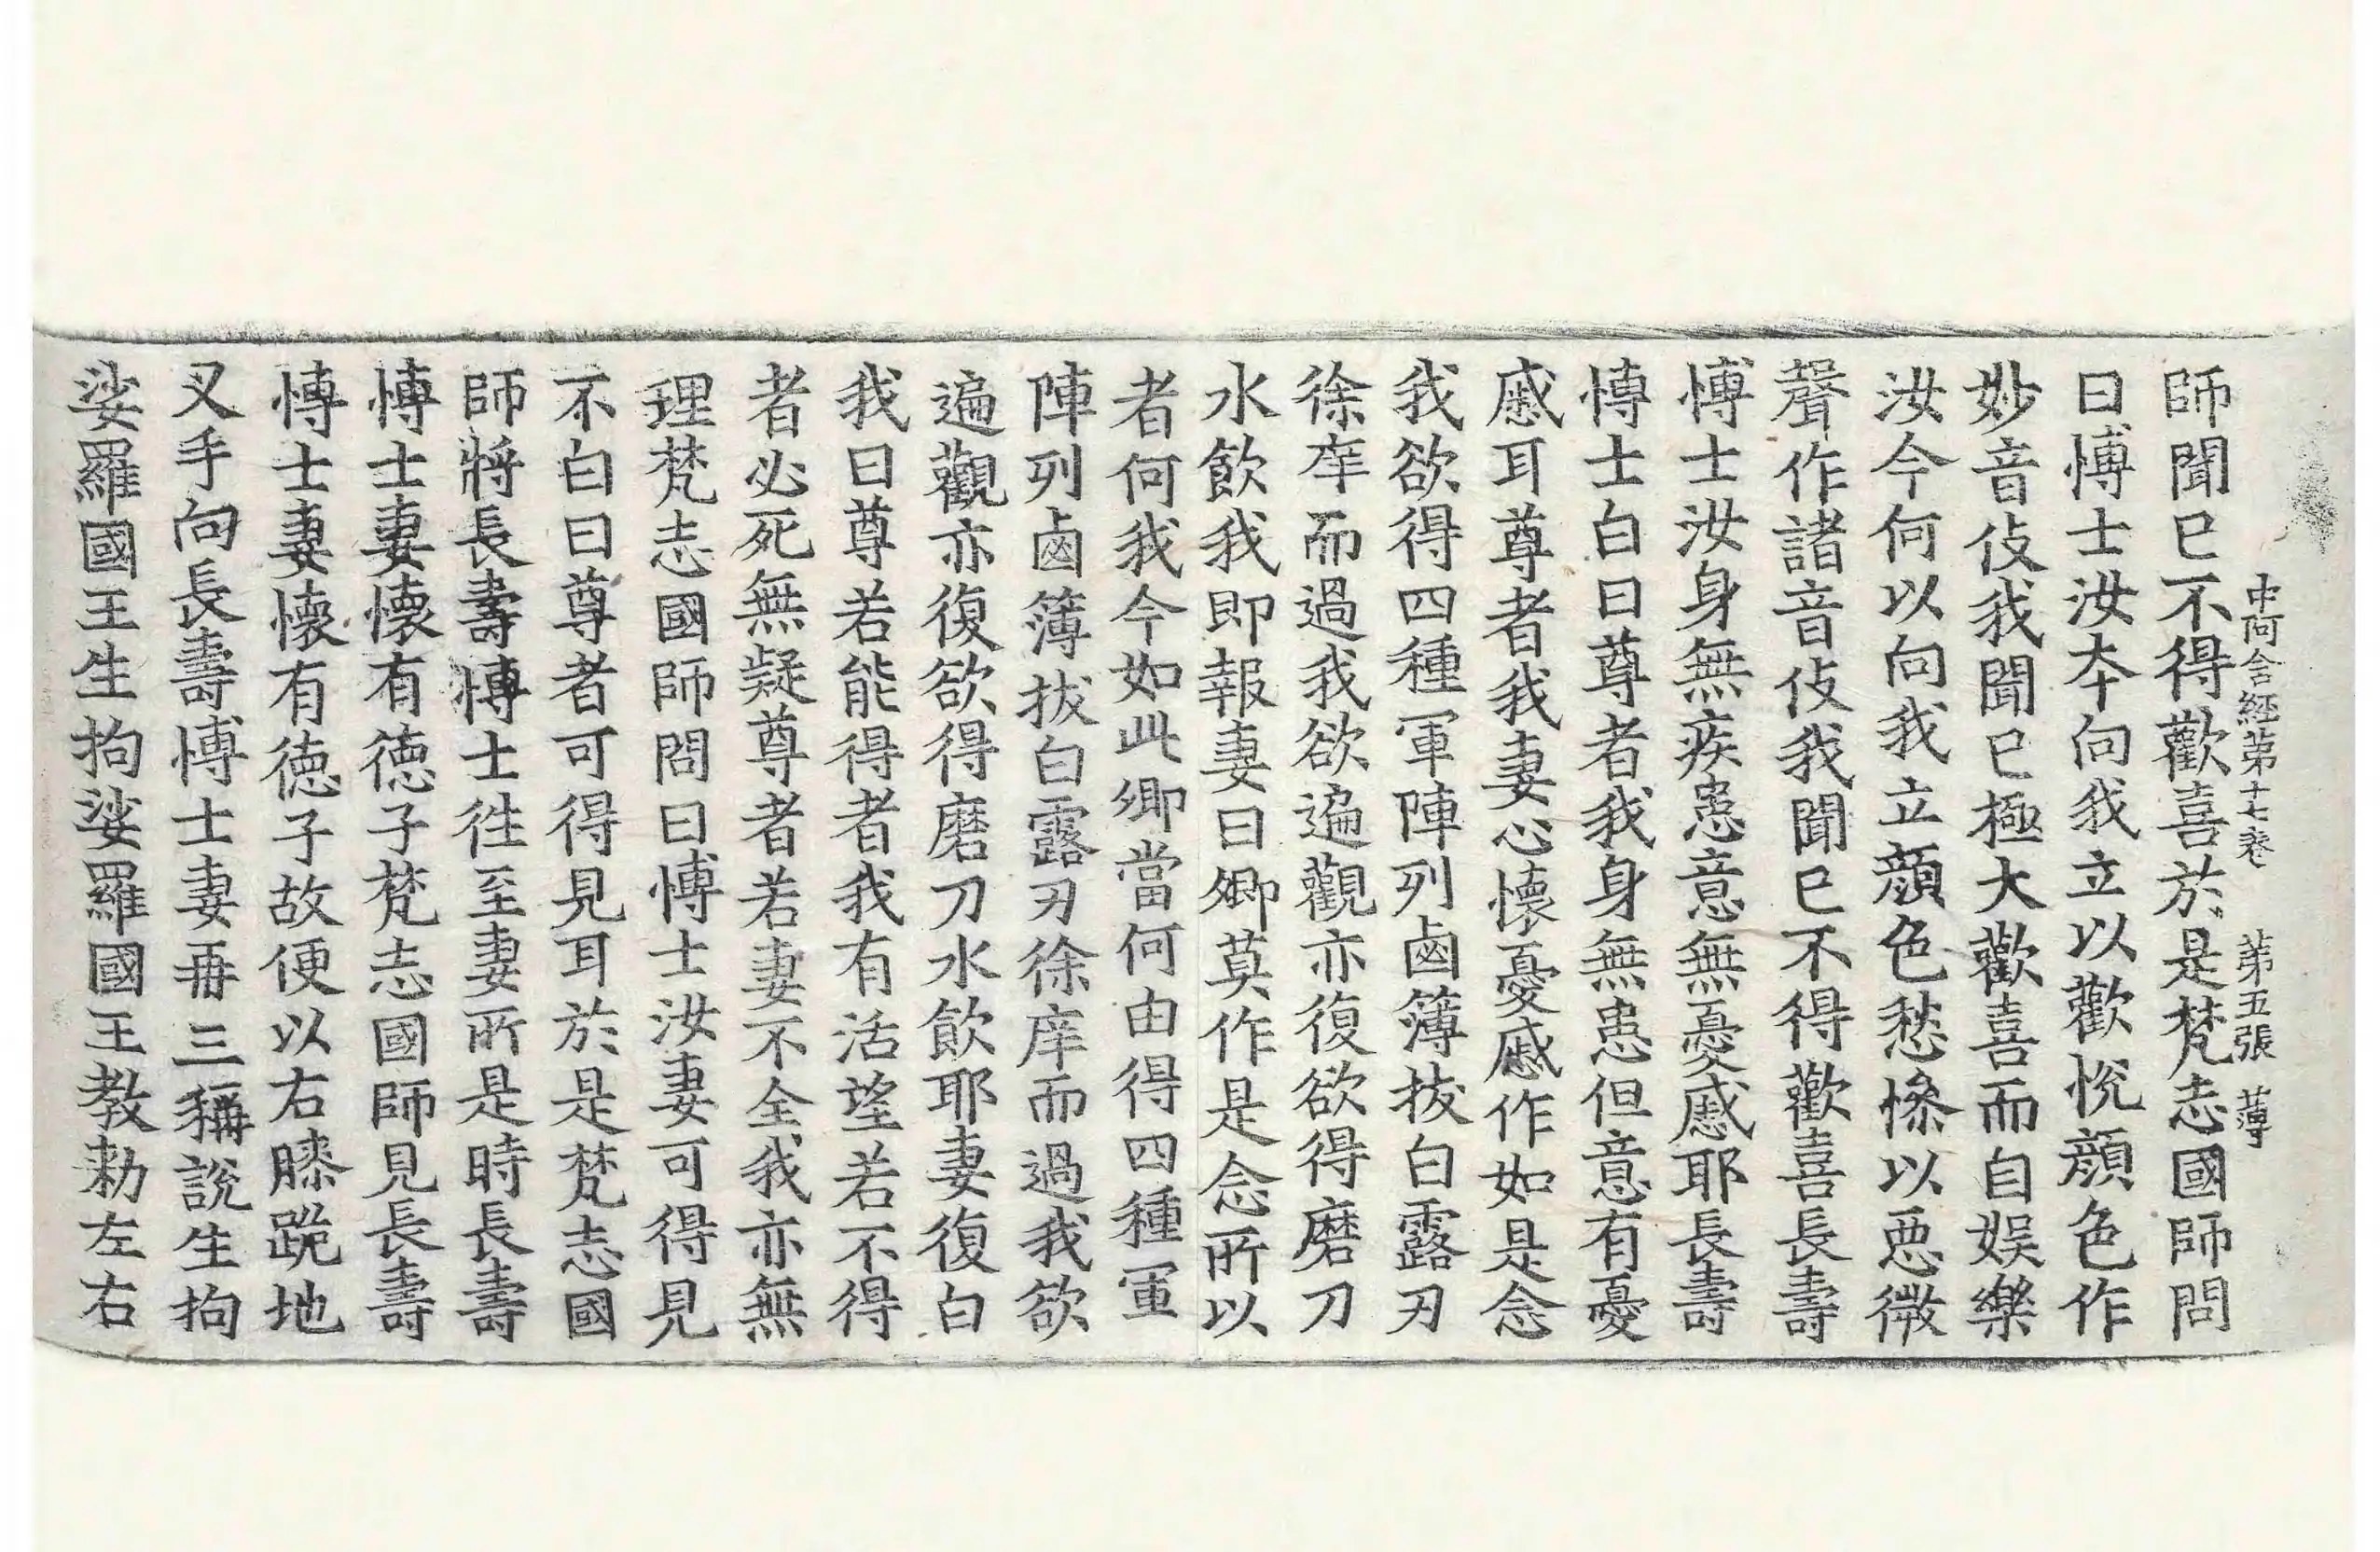 中阿含經第十七卷 第五張 薄
師聞已不得歡喜於是梵志國師問
曰愽士汝本向我立以歡悅顔色作
妙音伎我聞已極大歡喜而自娱樂
汝今何以向我立顔色愁慘以惡微
聲作諸音伎我聞已不得歡喜長壽
愽士汝身無疾患意無憂慼耶長壽
愽士白曰尊者我身無患但意有憂
慼耳尊者我妻心懷憂慼作如是念
我欲得四種軍陣列鹵簿拔白露刃
徐庠而過我欲遍觀亦復欲得磨刀
水飲我即報妻曰卿莫作是念所以
者何我今如此卿當何由得四種軍
陣列鹵簿拔白露刃徐庠而過我欲
遍觀亦復欲得磨刀水飲耶妻復白
我曰尊若能得者我有活望若不得
者必死無疑尊者若妻不全我亦無
理梵志國師問曰愽士汝妻可得見
不白曰尊者可得見耳於是梵志國
師將長壽愽士徃至妻所是時長壽
愽士妻懷有德子梵志國師見長壽
愽士妻懷有德子故便以右膝跪地
叉手向長壽愽士妻再三稱說生拘
娑羅國王生拘娑羅國王教勑左右